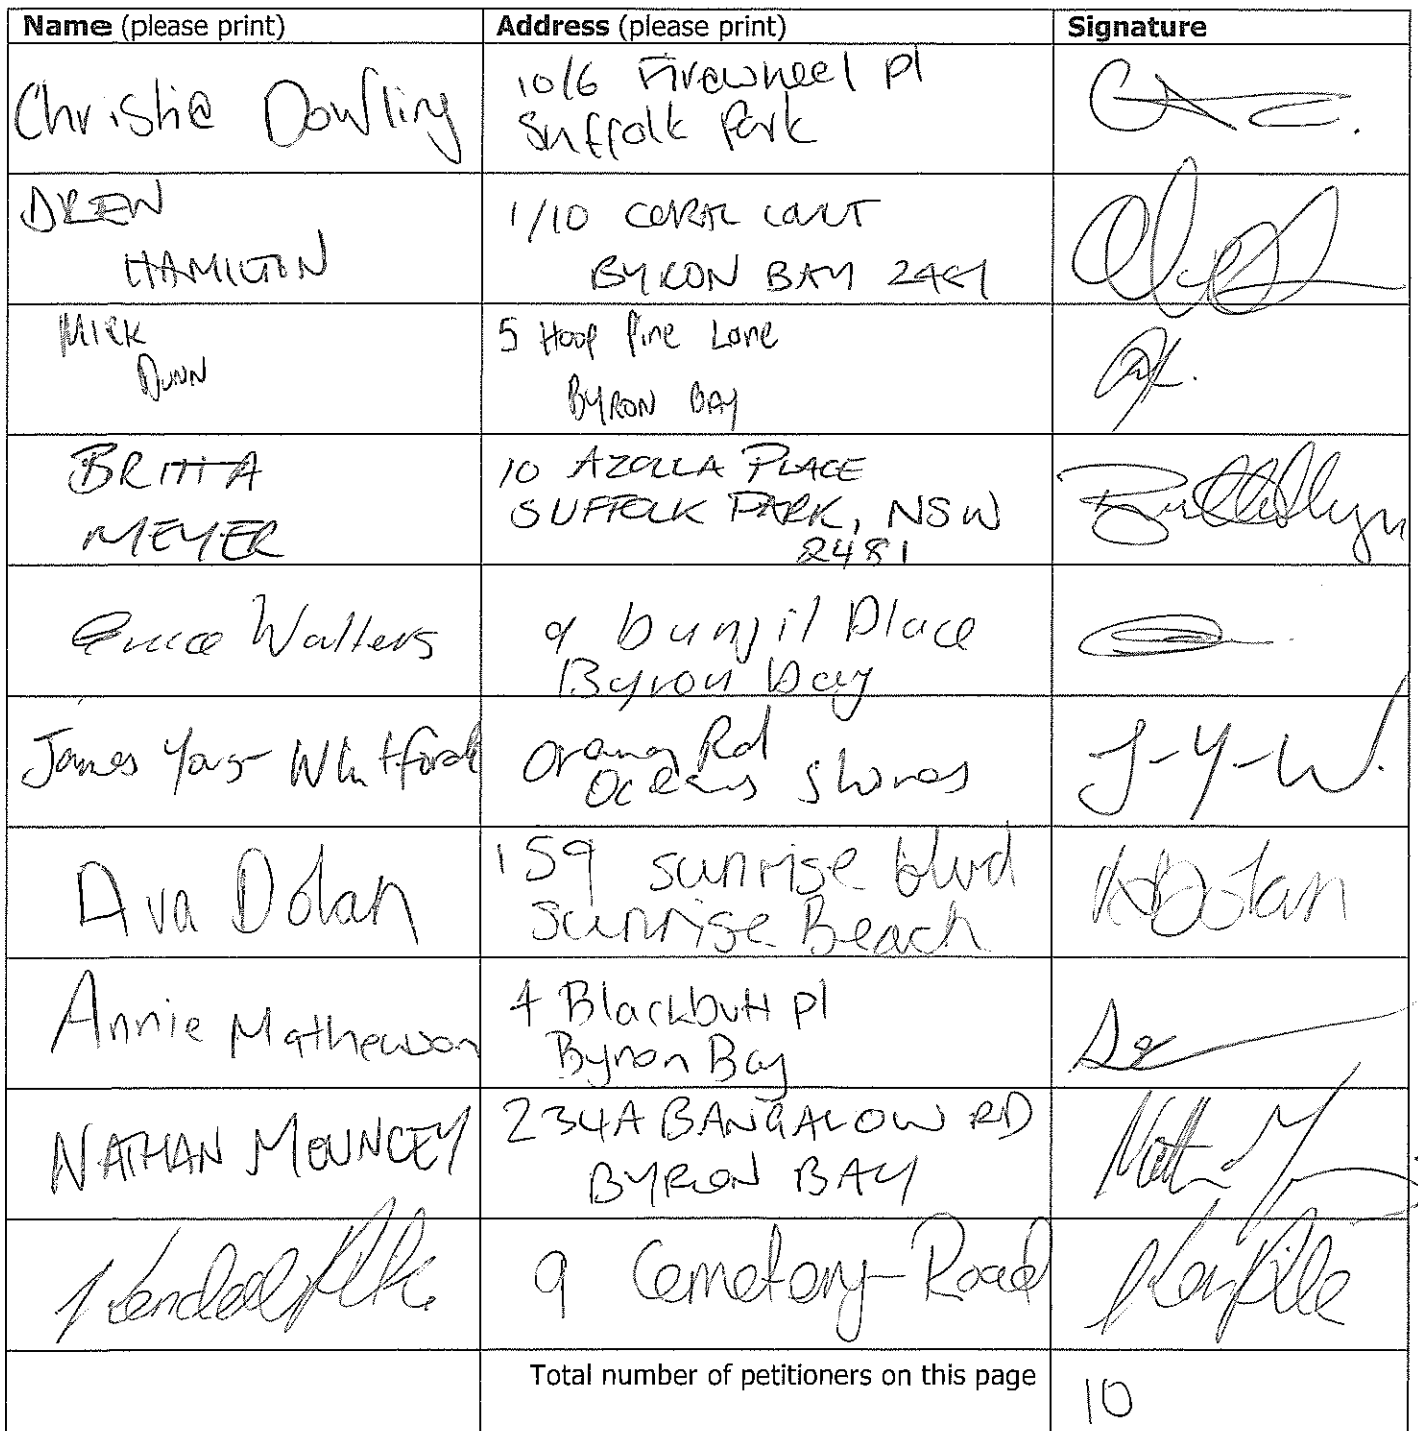 Name (please print) Address (please print) Signature
Christie Dowling
10/6 Firewheel pl
Suffolk Park
DREW
HAMILTON
1/10 CORAL COURT
BYRON BAY 2481
MICK
DUNN
5 Hoop Pine Lane
BYRON BAY
BRITTA
MEYER
10 AZOLLA PLACE
SUFFOLK PARK, NSW
2481
Walters
9 bunjil Place
Byron bay
James Young-Whitford
Orana Rd
Oceans Shores
J-Y-W.
Ava Dolan
159 sunrise blvd
Sunrise Beach
ADolan
Annie Mathewson
4 Blackbutt pl
Byron Bay
NATHAN MOUNCEY
234A BANGALOW RD
BYRON BAY
Kendall
9 Cemetery Road
Total number of petitioners on this page
10